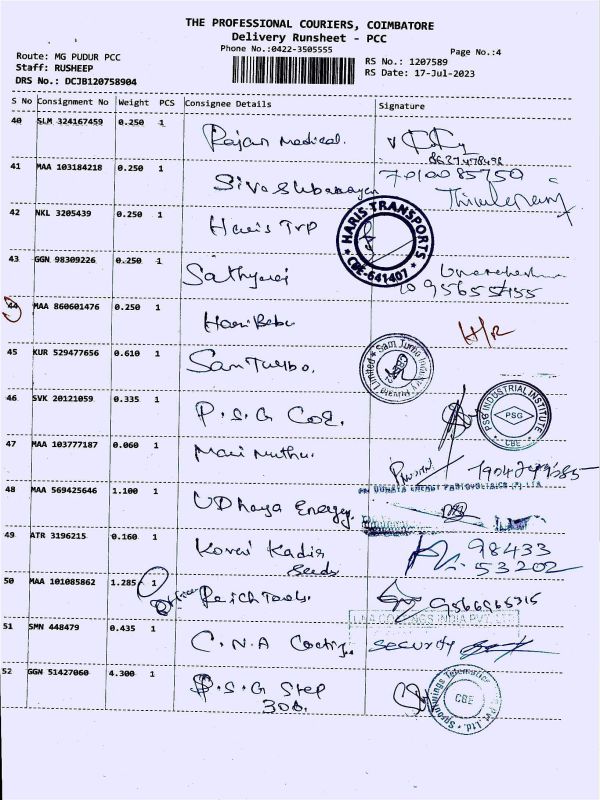 THE PROFESSIONAL COURIERS, COIMBATORE
Delivery Runsheet - PCC
Phone No.:0422-3505555
Page No.:4
Route: MG PUDUR PCC
Staff: RUSHEEP
DRS No.: DCJB120758904
RS No.: 1207589
RS Date: 17-Jul-2023
S No Consignment No Weight PCS Consignee Details Signature
40 SLM 324167459 0.250 1 Rajan Medical.
41 MAA 103184218 0.250 1 7010085750
42 NKL 3205439 0.250 1 Haris Trp
HARIS TRANSPORTS
CBE-641407
43 GGN 98309226 0.250 1
44 MAA 860601476 0.250 1 Hari Babu H/R
45 KUR 529477656 0.610 1
46 SVK 20121059 0.335 1 P.S.G COE.
PSG INDUSTRIAL INSTITUTE
PSG
CBE
47 MAA 103777187 0.060 1 Mari Muthu.
48 MAA 569425646 1.100 1 UDhaya Energy
49 ATR 3196215 0.160 1 Korai Kadir 98433
Seeds 53202
50 MAA 101085862 1.285 1 Reich Tools. 9566965315
51 SMN 448479 0.435 1 C.N.A Coating. Security
52 GGN 51427060 4.300 1 P.S.G Step
CBE